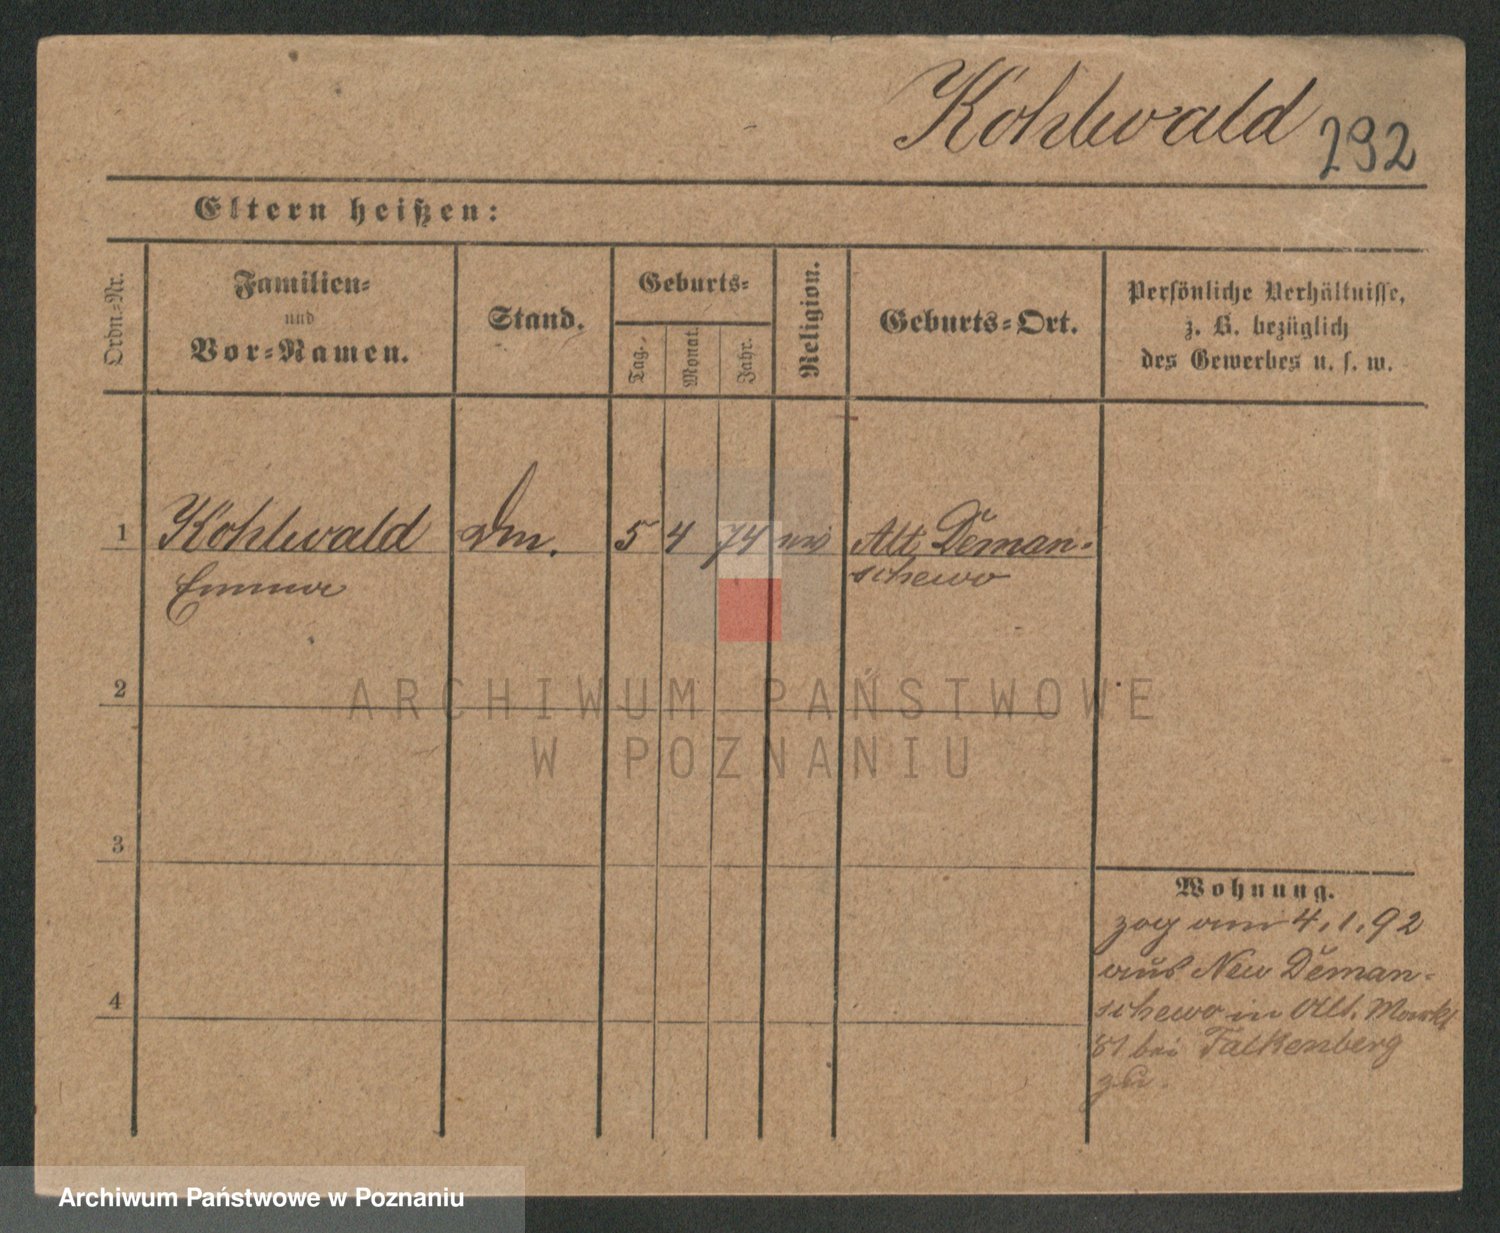 Kohlwald 292
Eltern heißen:
Ordn.-Nr.
Familien-
und
Vor-Namen.
Stand.
Geburts-
Tag.
Monat.
Jahr.
Religion.
Geburts-Ort.
Persönliche Verhältnisse,
z. B. bezüglich
des Gewerbes u. s. w.
1 Kohlwald Dm. 5 4 74 Alt Deman-
Emma schewo
2
ARCHIWUM PAŃSTWOWE
W POZNANIU
3
Wohnung.
zog am 4.1.92
aus Neu Deman-
schewo in Alt. Markt
81 bei Falkenberg
zu.
4
Archiwum Państwowe w Poznaniu